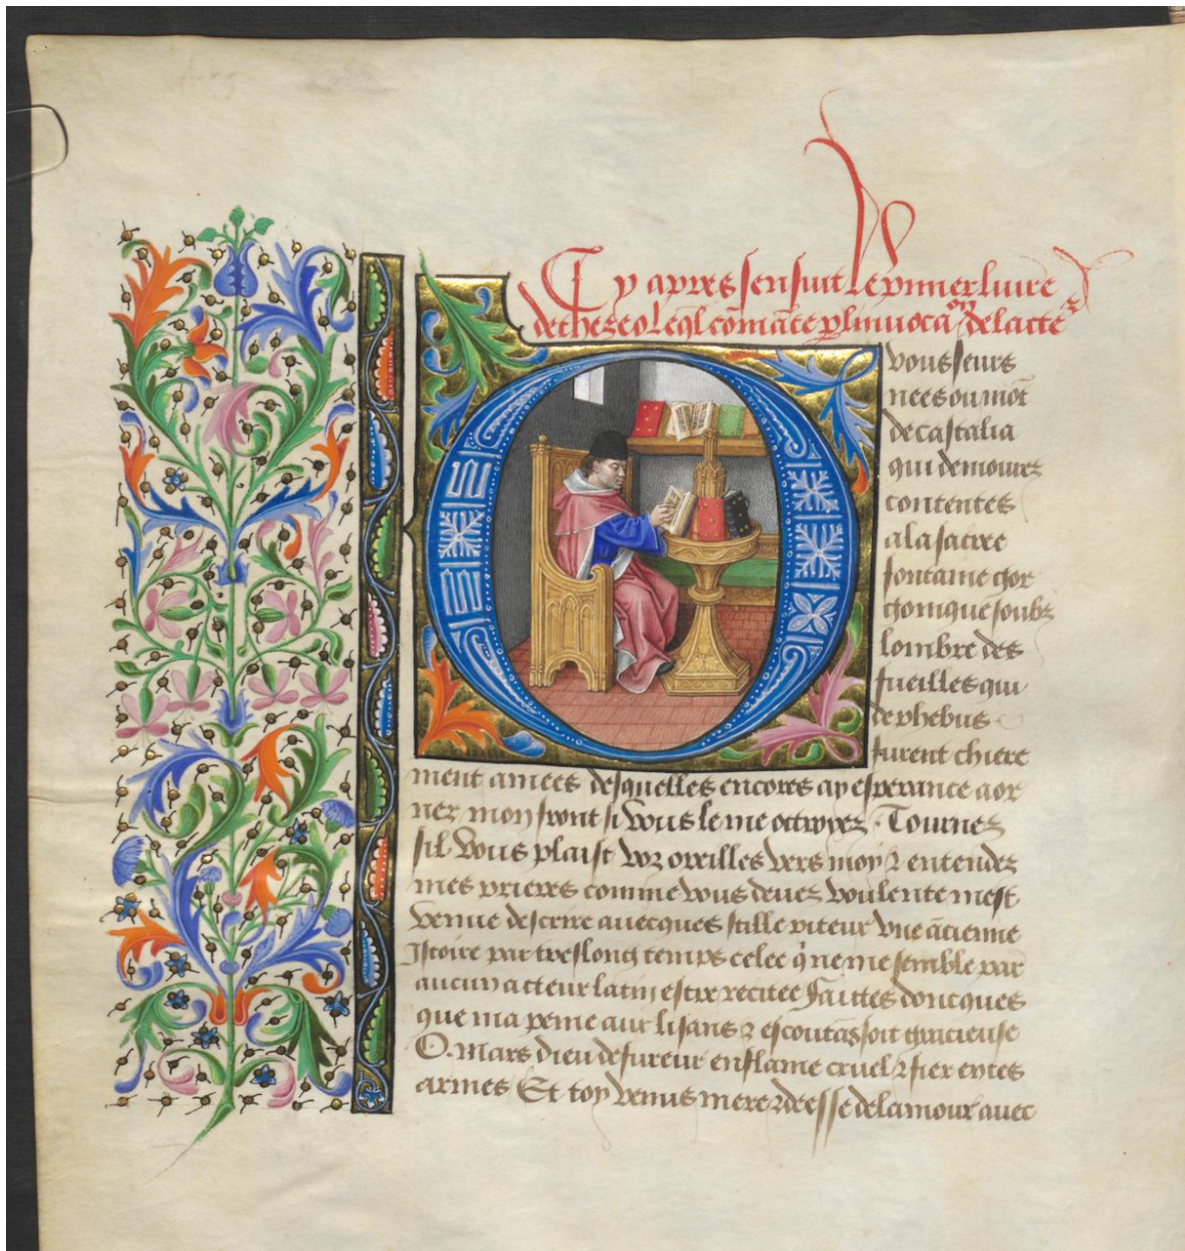 Cy apres sensuit le premier livre
de theseo leql cōmāce p linvocaōn de lacteᵣ
O vous seurs
nees ou mōt
de castalia
qui demourez
contentes
a la sacree
fontaine gor
gonique soubz
lombre des
fueilles qui
de phebus
furent chiere
ment amees desquelles encores ay esperance aor
nez mon front si vous le me octroyez . Tournez
sil vous plaist voz oreilles vers moy ⁊ entendez
mes prieres comme vous devez voulente mest
venue descrire avecques stille piteux vne āciēne
Istoire par tres long temps celee q̉ ne me semble par
aucun acteur latin estre recitee Faittes doncques
que ma peine aux lisans ⁊ escoutās soit gracieuse
O. Mars dieu de fureur enflame cruel ⁊ fier en tes
armes Et toy venus mere ⁊ deesse de lamour avec